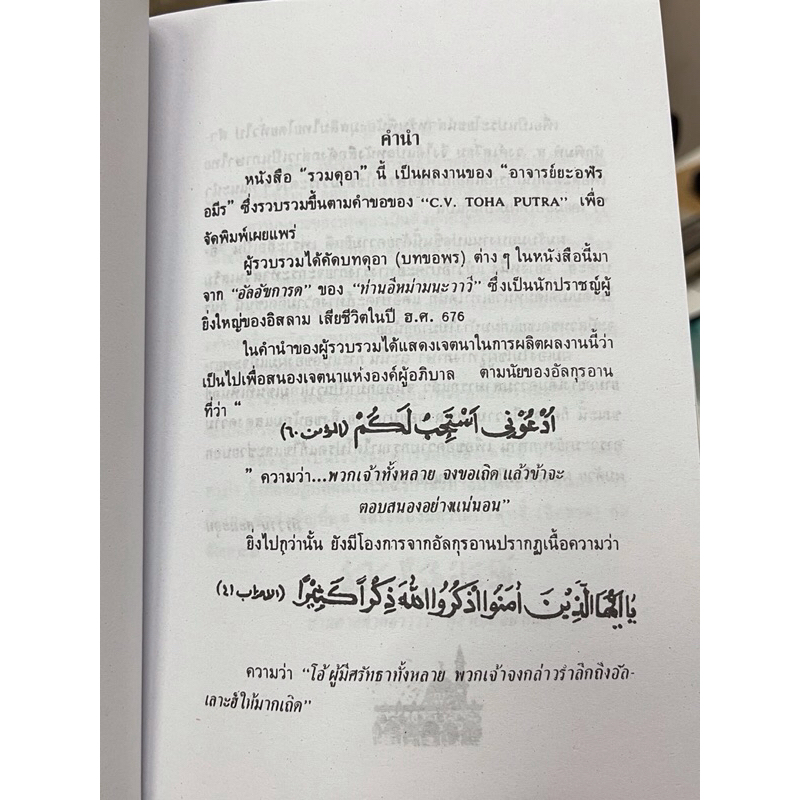 คำนำ
หนังสือ "รวมดุอา" นี้ เป็นผลงานของ "อาจารย์ยะอฟัร
อมีร" ซึ่งรวบรวมขึ้นตามคำขอของ "C.V. TOHA PUTRA" เพื่อ
จัดพิมพ์เผยแพร่
ผู้รวบรวมได้คัดบทดุอา (บทขอพร) ต่าง ๆ ในหนังสือนี้มา
จาก "อัลอัซการด" ของ "ท่านอีหม่ามนะวาวี" ซึ่งเป็นนักปราชญ์ผู้
ยิ่งใหญ่ของอิสลาม เสียชีวิตในปี ฮ.ศ. 676
ในคำนำของผู้รวบรวมได้แสดงเจตนาในการผลิตผลงานนี้ว่า
เป็นไปเพื่อสนองเจตนาแห่งองค์ผู้อภิบาล ตามนัยของอัลกุรอาน
ที่ว่า "
اُدْعُوْنِي اَسْتَجِبْ لَكُمْ (المؤمن ٦٠)
" ความว่า...พวกเจ้าทั้งหลาย จงขอเถิด แล้วข้าจะ
ตอบสนองอย่างแน่นอน"
ยิ่งไปกว่านั้น ยังมีโองการจากอัลกุรอานปรากฏเนื้อความว่า
يَا اَيُّهَا الَّذِيْنَ اٰمَنُوا اذْكُرُوا اللّٰهَ ذِكْرًا كَثِيْرًا (الاحزاب ٤١)
ความว่า "โอ้ ผู้มีศรัทธาทั้งหลาย พวกเจ้าจงกล่าวรำลึกถึงอัล-
เลาะฮ์ให้มากเถิด"